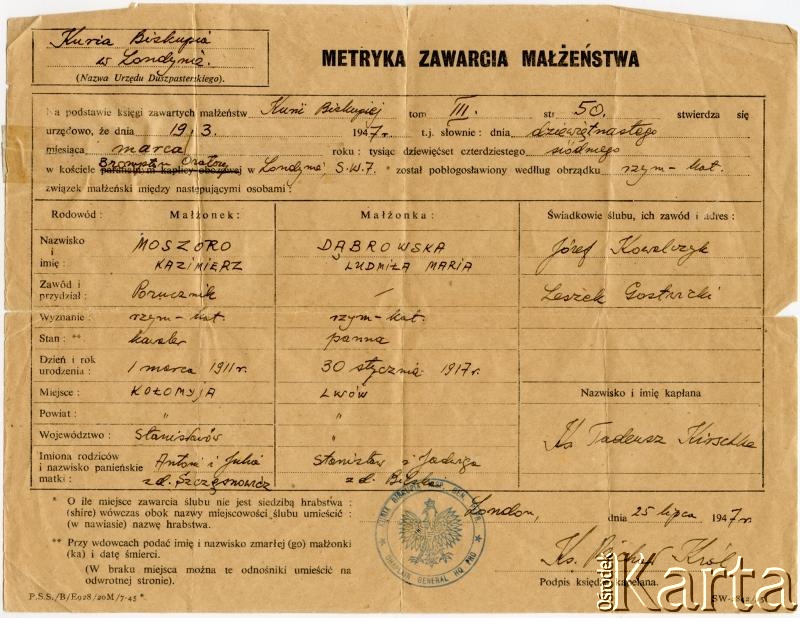 Kuria Biskupia
w Londynie.
(Nazwa Urzędu Duszpasterskiego).
METRYKA ZAWARCIA MAŁŻEŃSTWA
Na podstawie księgi zawartych małżeństw Kurii Biskupiej tom III. str 50. stwierdza się
urzędowo, że dnia 19. 3. 1947 r. t.j. słownie : dnia dziewiętnastego
miesiąca marca roku : tysiąc dziewięćset czterdziestego siódmego
Brompton Oratory
w kościele parafialnym kaplicy obozowej w Londynie, S.W.7. * został pobłogosławiony według obrządku rzym-kat.
związek małżeński między następującymi osobami :
Rodowód : Małżonek : Małżonka : Świadkowie ślubu, ich zawód i adres :
Nazwisko i imię : MOSZORO KAZIMIERZ DĄBROWSKA LUDMIŁA MARIA Józef Kowalczyk
Zawód i przydział : Porucznik / Leszek Gostwicki
Wyznanie : rzym-kat. rzym-kat.
Stan : ** kawaler panna
Dzień i rok urodzenia : 1 marca 1911 r. 30 stycznia 1917 r.
Miejsce : KOŁOMYJA LWÓW Nazwisko i imię kapłana
Powiat : " "
Województwo : Stanisławów " Ks Tadeusz Kirschke
Imiona rodziców i nazwisko panieńskie matki : Antoni i Julia z d. Szczęsnowicz Stanisław i Jadwiga z d.
* O ile miejsce zawarcia ślubu nie jest siedzibą hrabstwa :
(shire) wówczas obok nazwy miejscowości ślubu umieścić :
(w nawiasie) nazwę hrabstwa.
London, dnia 25 lipca 1947 r.
** Przy wdowcach podać imię i nazwisko zmarłej (go) małżonki
(ka) i datę śmierci.
(W braku miejsca można te odnośniki umieścić na
odwrotnej stronie).
Ks. Król
Podpis księdza kapelana.
P.S.S./B/E928/20M/7-45 *.
Ośrodek
Karta